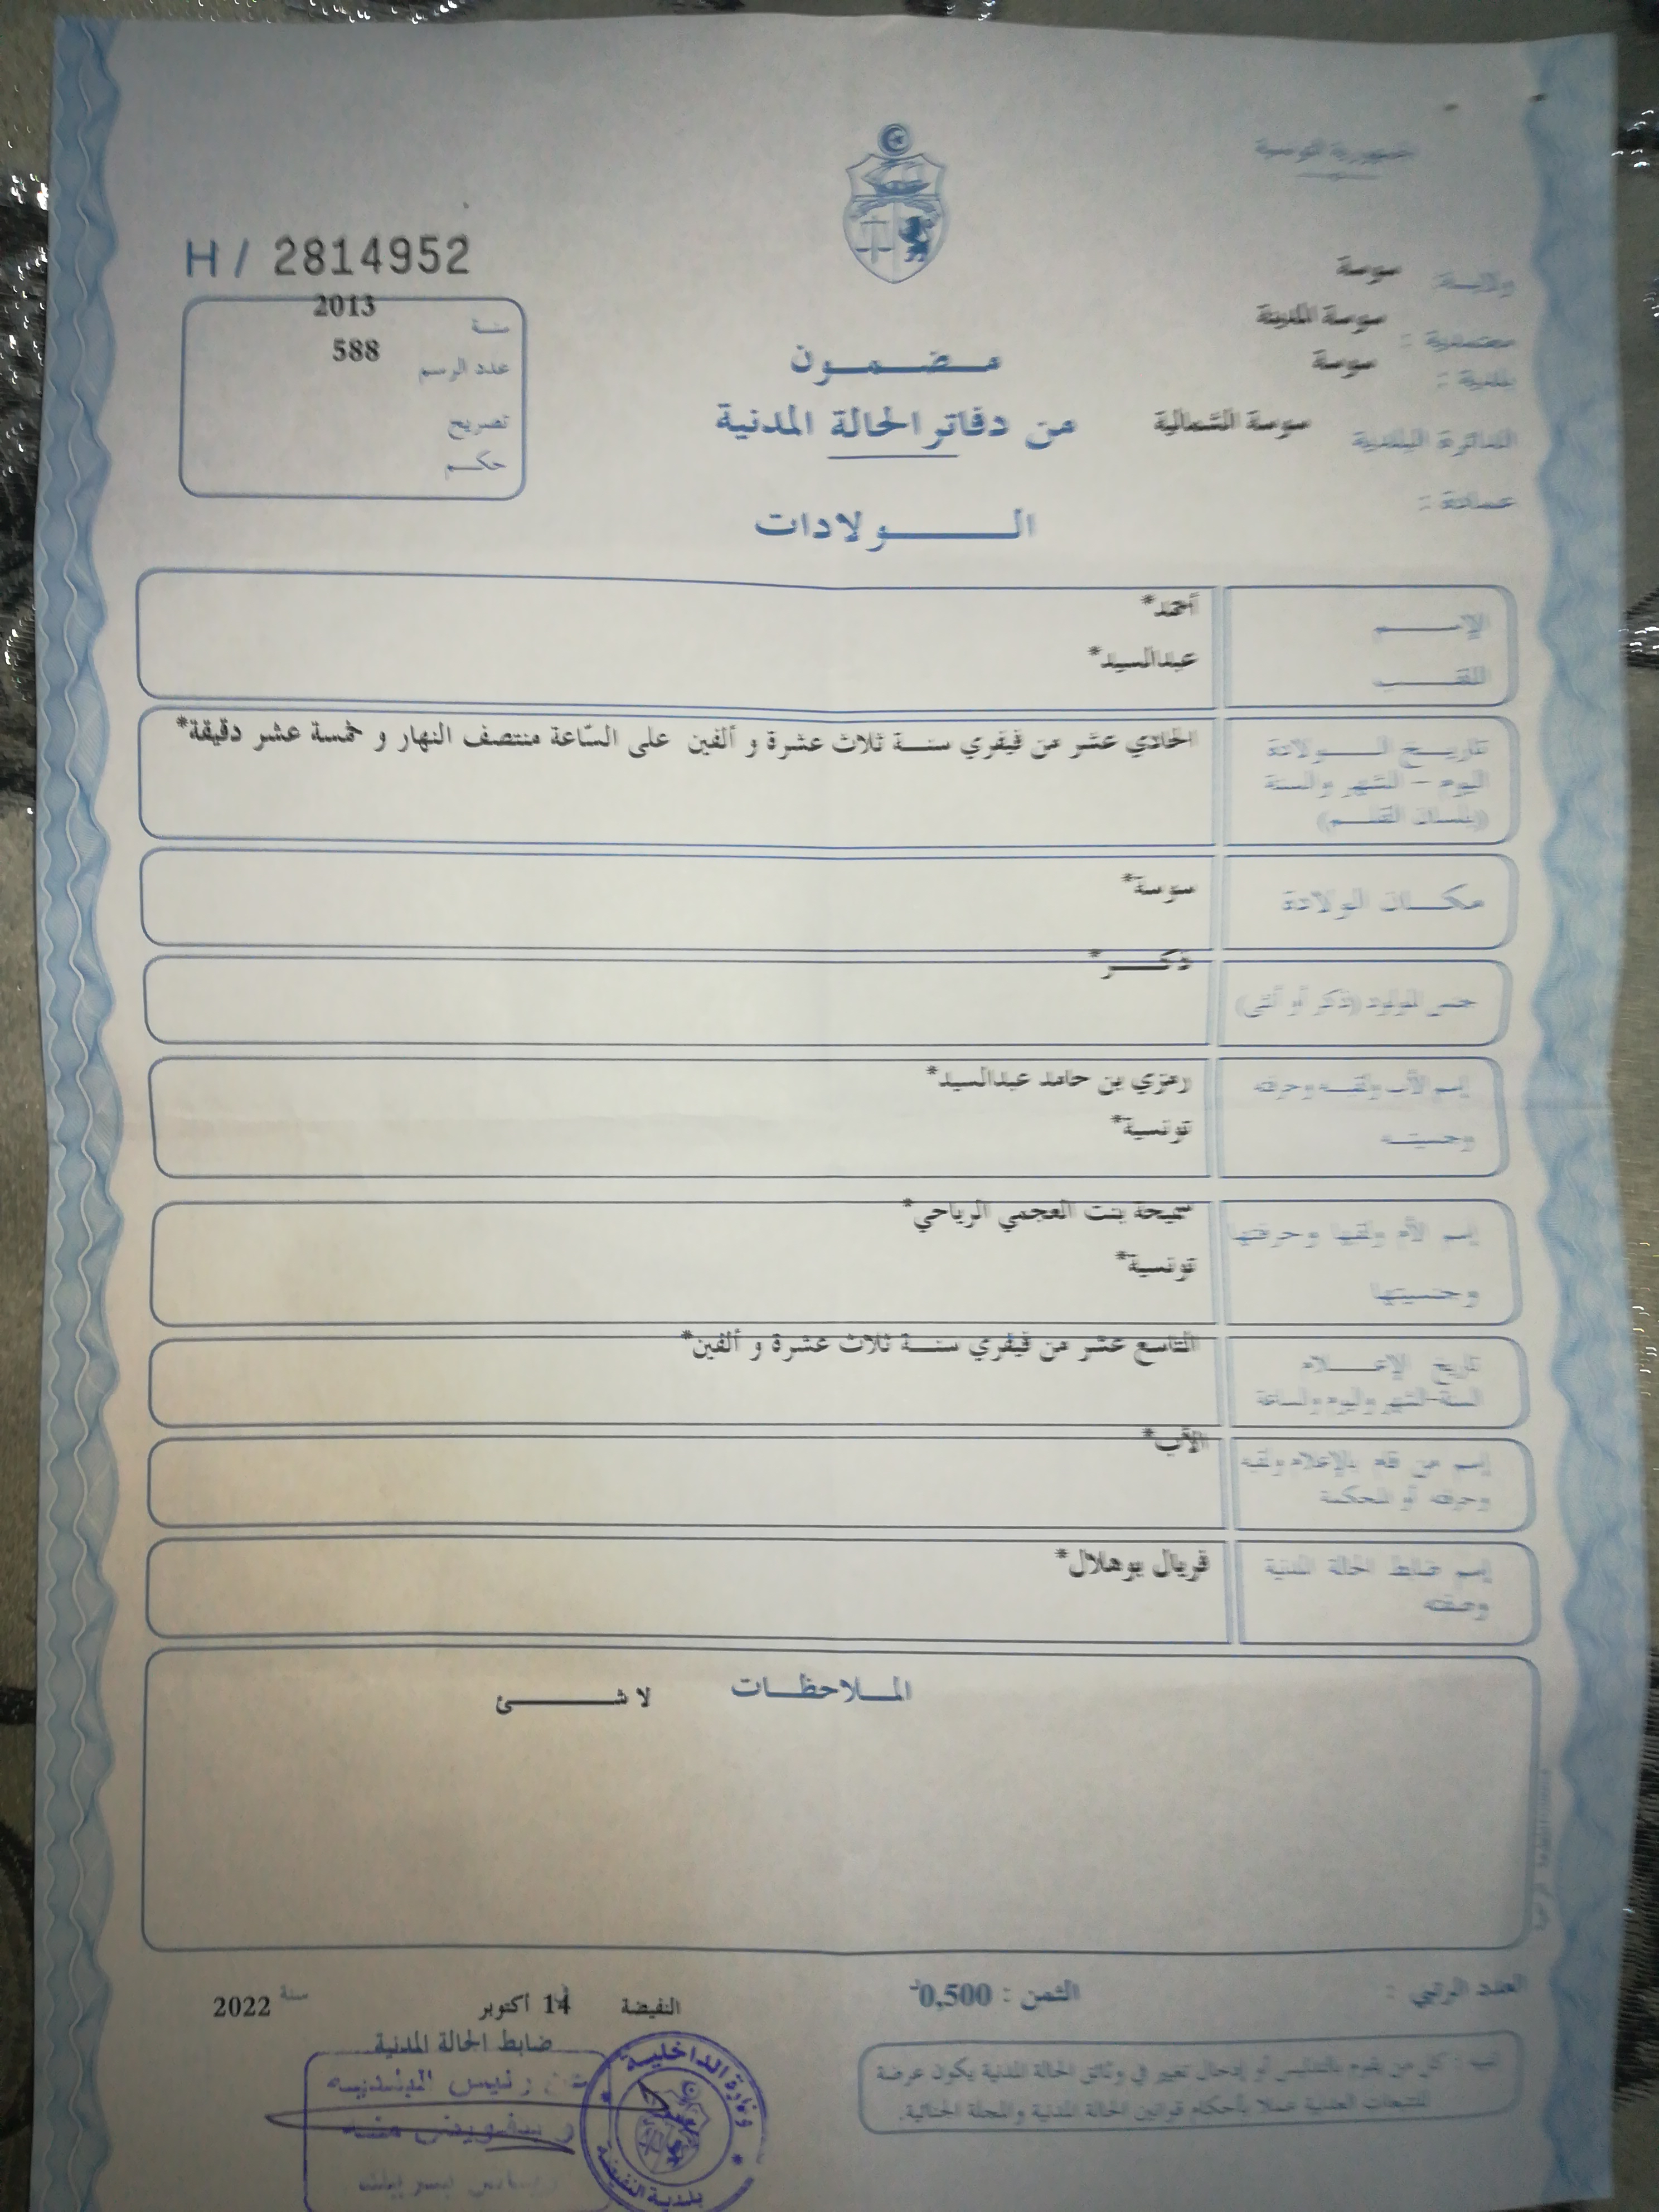 الجمهورية التونسية
H / 2814952
ولايـة: سوسة
معتمدية : سوسة المدينة
بلدية : سوسة
الدائرة البلدية سوسة الشمالية
عمادة :
سنة 2013
عدد الرسم 588
تصريح
حكم
مضمون
من دفاتر الحالة المدنية
الولادات
الإسم أحمد*
اللقب عبدالسيد*
تاريخ الولادة الحادي عشر من فيفري سنة ثلاث عشرة و ألفين على السّاعة منتصف النهار و خمسة عشر دقيقة*
اليوم – الشهر والسنة
(بلسان القلم)
مكان الولادة سوسة*
جنس المولود (ذكر أو أنثى) ذكر*
إسم الأب ولقبه وحرفته رمزي بن حامد عبدالسيد*
وجنسيته تونسية*
إسم الأم ولقبها وحرفتها سميحة بنت العجمي الرياحي*
وجنسيتها تونسية*
تاريخ الإعلام التاسع عشر من فيفري سنة ثلاث عشرة و ألفين*
السنة-الشهر واليوم والساعة
إسم من قام بالإعلام ولقبه الأب*
وحرفته أو المحكمة
إسم ضابط الحالة المدنية فريال بوهلال*
وصفته
الملاحظات لا شئ
العدد الرتبي :
الثمن : 0,500د
النفيضة 14 أكتوبر سنة 2022
ضابط الحالة المدنية
عن رئيس البلدية
و بتفويض منه
وزارة الداخلية
بلدية النفيضة
تنبيه : كل من يقوم بالتدليس أو إدخال تغيير في وثائق الحالة المدنية يكون عرضة
للتتبعات العدلية عملا بأحكام قوانين الحالة المدنية والمجلة الجنائية.